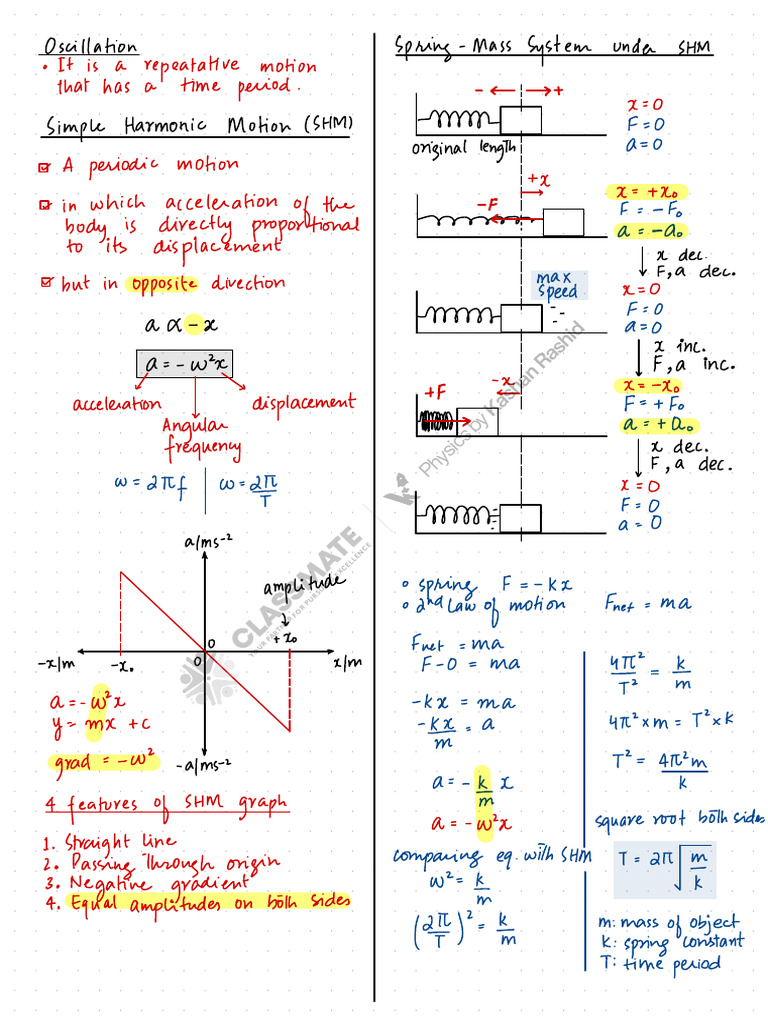 Oscillation
• It is a repeatative motion
that has a time period.
Simple Harmonic Motion (SHM)
☑ A periodic motion
☑ in which acceleration of the
body is directly proportional
to its displacement
☑ but in opposite direction
a ∝ - x
a = - ω²x
acceleration displacement
Angular
frequency
ω = 2πf | ω = 2π/T
a/ms-2
amplitude
↓
+x₀
0
-x/m -x₀ 0 x/m
a = - ω²x
y = mx + c
grad = - ω²
-a/ms-2
4 features of SHM graph
1. Straight line
2. Passing through origin
3. Negative gradient
4. Equal amplitudes on both sides
Spring - Mass System under SHM
- ← → +
original length
x = 0
F = 0
a = 0
+x
-F
x = +x₀
F = - F₀
a = - a₀
x dec.
F, a dec.
max
speed
x = 0
F = 0
a = 0
x inc.
F, a inc.
-x
+F
x = - x₀
F = + F₀
a = + a₀
x dec.
F, a dec.
x = 0
F = 0
a = 0
• spring F = - kx
• 2nd law of motion Fnet = ma
Fnet = ma
F - 0 = ma
- kx = ma
- kx/m = a
a = - k/m x
a = - ω²x
comparing eq. with SHM
ω² = k/m
(2π/T)² = k/m
4π²/T² = k/m
4π² × m = T² × k
T² = 4π²m/k
square root both sides
T = 2π√(m/k)
m: mass of object
k: spring constant
T: time period
Physics by Kashan Rashid
CLASSMATE
YOUR PARTNER FOR PURSUING EXCELLENCE